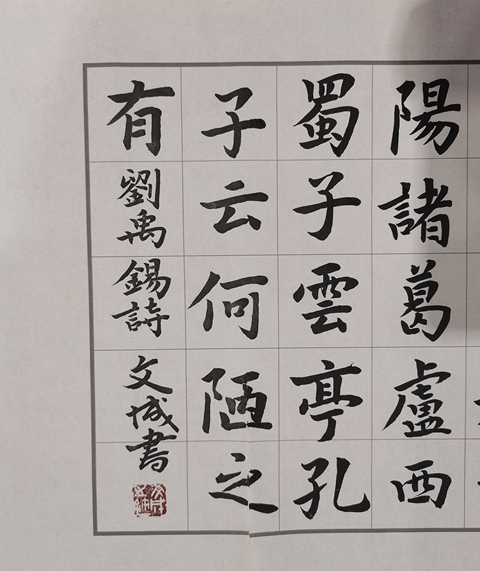 陽諸葛廬西
蜀子雲亭孔
子云何陋之
有
劉禹錫詩
文城書